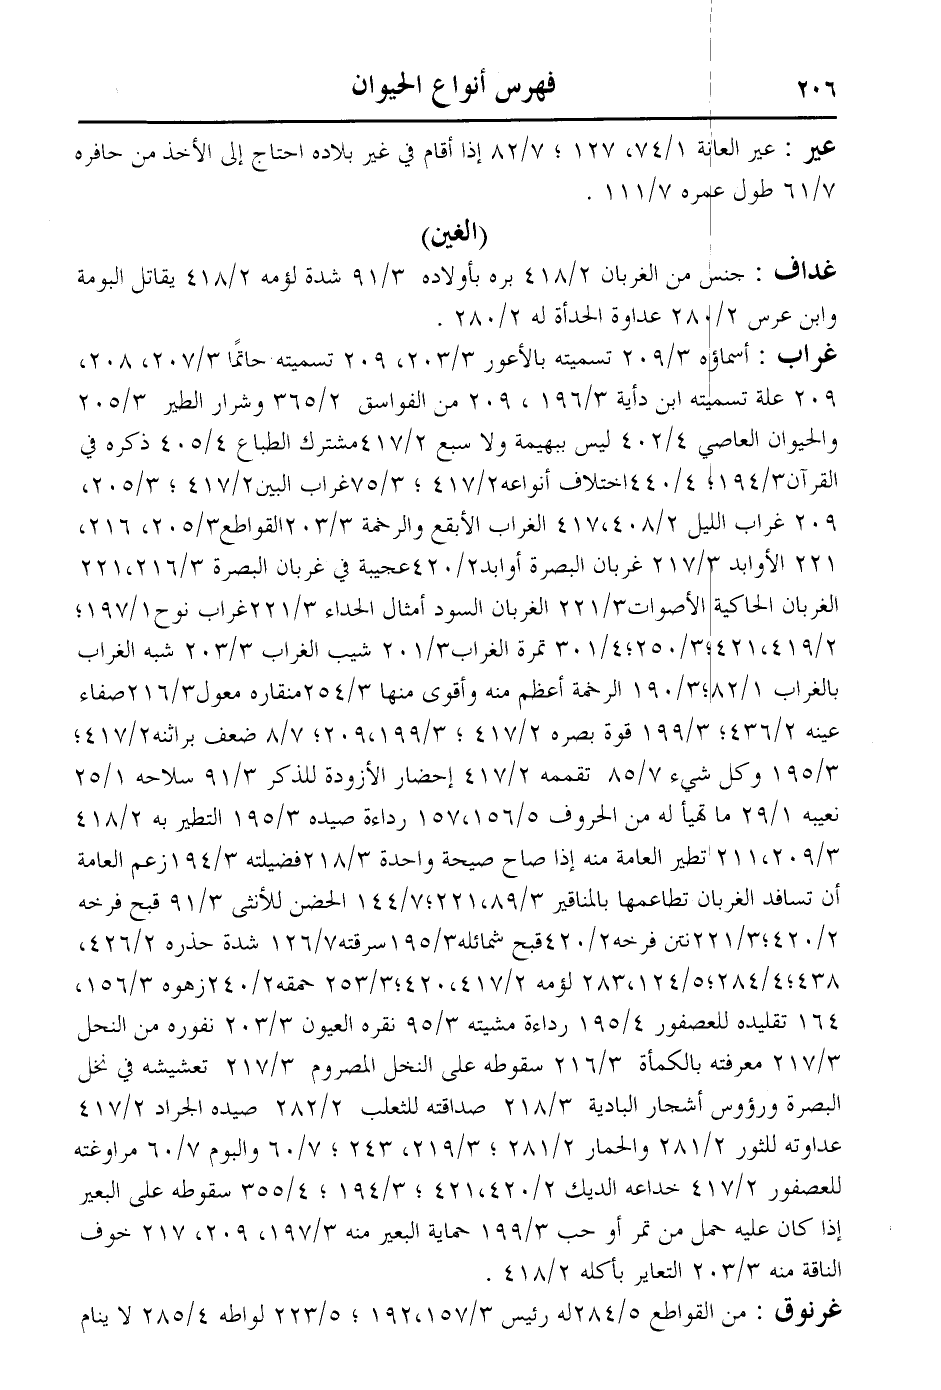 ٢٠٦ فهرس أنواع الحيوان
عير : عير العانة ٧٤/١، ١٢٧ ؛ ٨٢/٧ إذا أقام في غير بلاده احتاج إلى الأخذ من حافره
٦١/٧ طول عمره ١١١/٧ .
(الغين)
غداف : جنس من الغربان ٤١٨/٢ بره بأولاده ٩١/٣ شدة لؤمه ٤١٨/٢ يقاتل البومة
وابن عرس ٢٨٠/٢ عداوة الحدأة له ٢٨٠/٢ .
غراب : أسماؤه ٢٠٩/٣ تسميته بالأعور ٢٠٣/٣، ٢٠٩ تسميته حاتمًا ٢٠٧/٣، ٢٠٨،
٢٠٩ علة تسميته ابن دأية ١٩٦/٣ ، ٢٠٩ من الفواسق ٣٦٥/٢ وشرار الطير ٢٠٥/٣
والحيوان العاصي ٤٠٢/٤ ليس ببهيمة ولا سبع ٤١٧/٢مشترك الطباع ٤٠٥/٤ ذكره في
القرآن١٩٤/٣؛ ٤٤٠/٤اختلاف أنواعه٤١٧/٢ ؛ ٧٥/٣غراب البين٤١٧/٢ ؛ ٢٠٥/٣،
٢٠٩ غراب الليل ٤١٧،٤٠٨/٢ الغراب الأبقع والرخمة ٢٠٣/٣القواطع٢٠٥/٣، ٢١٦،
٢٢١ الأوابد ٢١٧/٣ غربان البصرة أوابد٤٢٠/٢عجيبة في غربان البصرة ٢٢١،٢١٦/٣
الغربان الحاكية الأصوات٢٢١/٣ الغربان السود أمثال الحداء ٢٢١/٣غراب نوح١٩٧/١؛
٤٢١،٤١٩/٢؛٢٥٠/٣؛٣٠١/٤ تمرة الغراب٢٠١/٣ شيب الغراب ٢٠٣/٣ شبه الغراب
بالغراب ٨٢/١؛١٩٠/٣ الرخمة أعظم منه وأقوى منها ٢٥٤/٣منقاره معول٢١٦/٣صفاء
عينه ٤٣٦/٢؛ ١٩٩/٣ قوة بصره ٤١٧/٢ ؛ ٢٠٩،١٩٩/٣؛ ٨/٧ ضعف براثنه٤١٧/٢؛
١٩٥/٣ وكل شيء ٨٥/٧ تقممه ٤١٧/٢ إحضار الأزودة للذكر ٩١/٣ سلاحه ٢٥/١
نعيبه ٢٩/١ ما تهيأ له من الحروف ١٥٧،١٥٦/٥ رداءة صيده ١٩٥/٣ التطير به ٤١٨/٢
٢١١،٢٠٩/٣ تطير العامة منه إذا صاح صيحة واحدة ٢١٨/٣فضيلته ١٩٤/٣زعم العامة
أن تسافد الغربان تطاعمها بالمناقير ٢٢١،٨٩/٣؛١٤٤/٧ الحضن للأنثى ٩١/٣ قبح فرخه
٤٢٠/٢؛٢٢١/٣نتن فرخه٤٢٠/٢قبح شمائله١٩٥/٣سرقته١٢٦/٧ شدة حذره ٤٢٦/٢،
٤٣٨؛٢٨٤/٤؛٢٨٣،١٢٤/٥ لؤمه ٤٢٠،٤١٧/٢؛٢٥٣/٣ حمقه٢٤٠/٢زهوه ١٥٦/٣،
١٦٤ تقليده للعصفور ١٩٥/٤ رداءة مشيته ٩٥/٣ نقره العيون ٢٠٣/٣ نفوره من النحل
٢١٧/٣ معرفته بالكمأة ٢١٦/٣ سقوطه على النخل المصروم ٢١٧/٣ تعشيشه في نخل
البصرة ورؤوس أشجار البادية ٢١٨/٣ صداقته للثعلب ٢٨٢/٢ صيده الجراد ٤١٧/٢
عداوته للثور ٢٨١/٢ والحمار ٢٨١/٢ ؛ ٢١٩/٣، ٢٤٣ ؛ ٦٠/٧ والبوم ٦٠/٧ مراوغته
للعصفور ٤١٧/٢ خداعه الديك ٤٢١،٤٢٠/٢ ؛ ١٩٤/٣ ؛ ٣٥٥/٤ سقوطه على البعير
إذا كان عليه حمل من تمر أو حب ١٩٩/٣ حماية البعير منه ١٩٧/٣، ٢٠٩، ٢١٧ خوف
الناقة منه ٢٠٣/٣ التعاير بأكله ٤١٨/٢ .
غرنوق : من القواطع ٢٨٤/٥له رئيس ١٩٢،١٥٧/٣ ؛ ٢٢٣/٥ لواطه ٢٨٥/٤ لا ينام